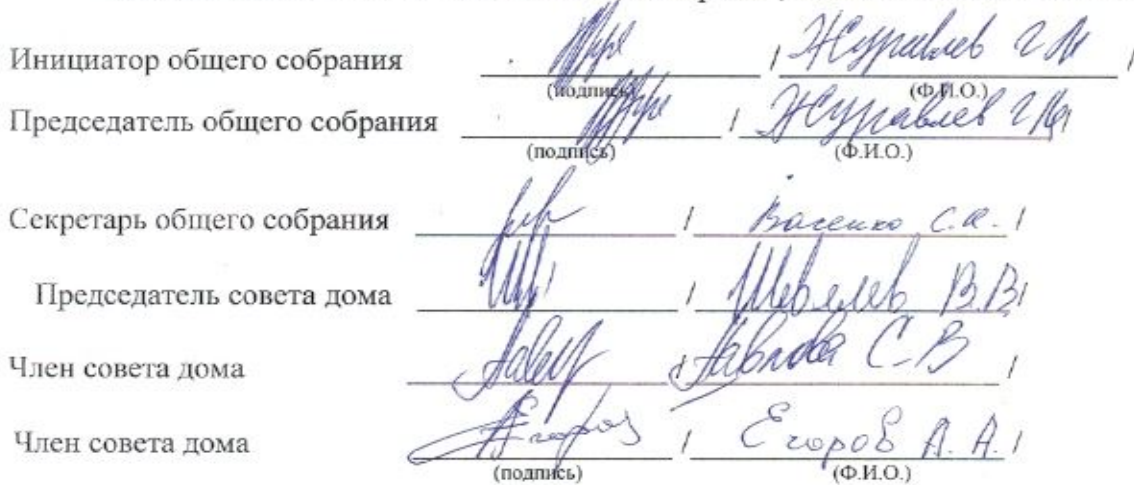 Инициатор общего собрания / Журавлев Г.И. /
(подпись) (Ф.И.О.)
Председатель общего собрания / Журавлев Г.И. /
(подпись) (Ф.И.О.)
Секретарь общего собрания / С.А. /
Председатель совета дома / В.В. /
Член совета дома / Павлова С.В /
Член совета дома Егоров / Егоров А.А. /
(подпись) (Ф.И.О.)